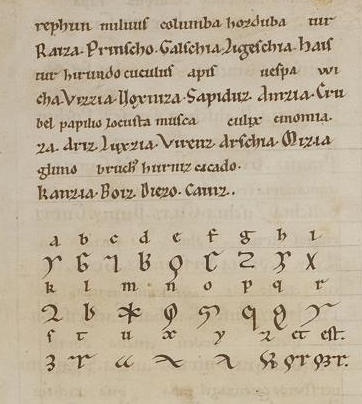 rephun miluus columba horduba tur
Raiza. Prinscho. Galschia. Ligeschia. Hais
tur hirundo cuculus apis uespa wi
cha. Virzia. Uoxinza. Sapiduz. Amzia. Cru
bel papilio locusta musca culix cinomia.
za. Ariz. Luxzia. Virenz. Arschia. Mizia
glimo hurniz cicado.
kanzia. Boiz. Diezo. Cainz.
a b c d e f g h i
k l m n o p q r
s t u x y z et est.